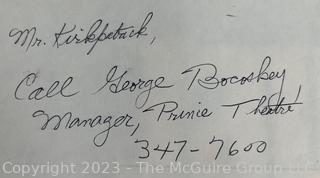 Mr. Kirkpatrick,
Call George Bocoskey
Manager, Prince Theatre
347-7600
Copyright 2023 - The McGuire Group LLC